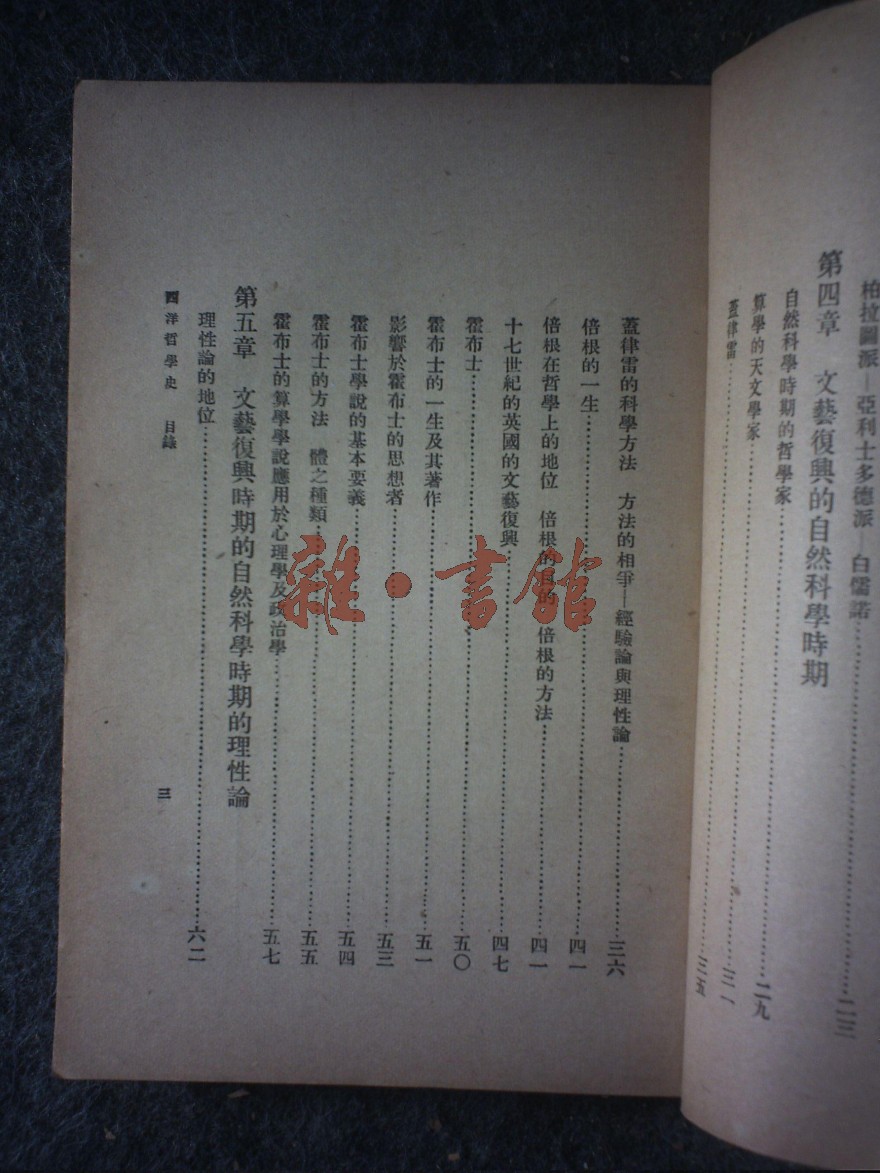 柏拉圖派—亞利士多德派—白儒諾……二三
第四章　文藝復興的自然科學時期
自然科學時期的哲學家……二九
算學的天文學家……三一
蓋律雷……三五
蓋律雷的科學方法　方法的相爭—經驗論與理性論……三六
倍根的一生……四一
倍根在哲學上的地位　倍根的目的　倍根的方法……四一
十七世紀的英國的文藝復興……四七
霍布士……五〇
霍布士的一生及其著作……五一
影響於霍布士的思想者……五三
霍布士學說的基本要義……五四
霍布士的方法　體之種類……五五
霍布士的算學學說應用於心理學及政治學……五七
第五章　文藝復興時期的自然科學時期的理性論
理性論的地位……六二
西洋哲學史　目錄
三
雜·書館